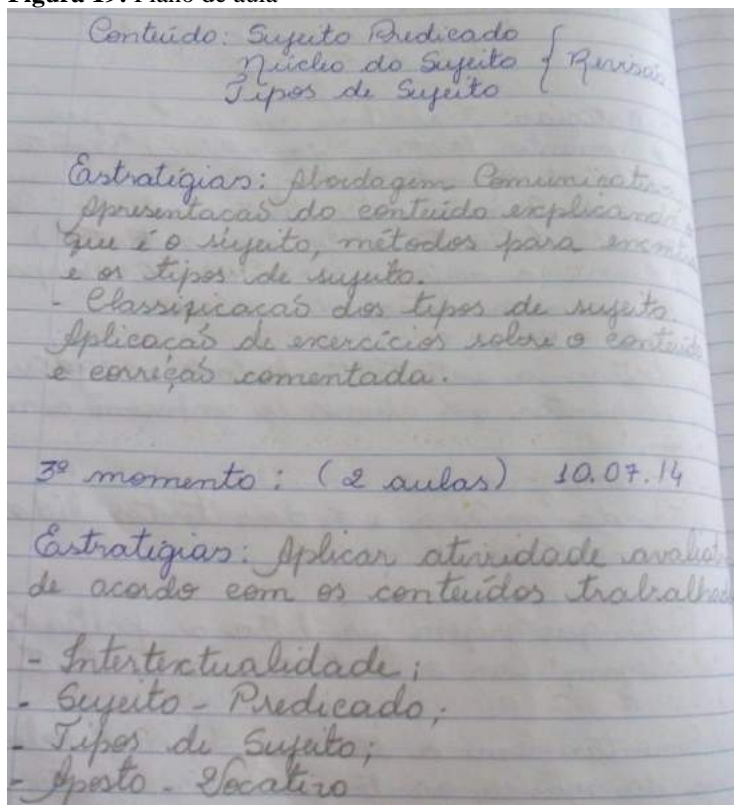 Figura 19: Plano de aula
Conteúdo: Sujeito Predicado
Núcleo do Sujeito } Revisão
Tipos de Sujeito
Estratégias: Abordagem Comunicativ
Apresentação do conteúdo explicando
que é o sujeito, métodos para encont
e os tipos de sujeito.
- Classificação dos tipos de sujeito.
Aplicação de exercícios sobre o conteúd
e correção comentada.
3º momento: (2 aulas) 10.07.14
Estratégias: Aplicar atividade avaliat
de acordo com os conteúdos trabalhad
- Intertextualidade;
- Sujeito - Predicado;
- Tipos de Sujeito;
- Aposto - Vocativo